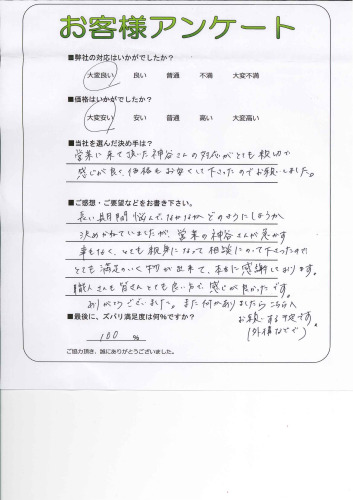 お客様アンケート
■弊社の対応はいかがでしたか?
大変良い 良い 普通 不満 大変不満
■価格はいかがでしたか?
大変安い 安い 普通 高い 大変高い
■当社を選んだ決め手は?
営業に来て頂いた神谷さんの対応がとても親切で
感じが良く、価格もお安くして下さったのでお願いしました。
■ご感想・ご要望などをお書き下さい。
長い期間悩んで、なかなかどのようにしようか
決めかねていましたが、営業の神谷さんが急かす
事もなく、とても親身になって相談にのって下さったので
とても満足のいく物が出来て、本当に感謝しております。
職人さんも皆さんとても良い方で、感じが良かったです。
ありがとうございました。また何かありましたらこちらへ
お願いする予定です。
(外構などで)
■最後に、ズバリ満足度は何%ですか?
100 %
ご協力頂き、誠にありがとうございました。